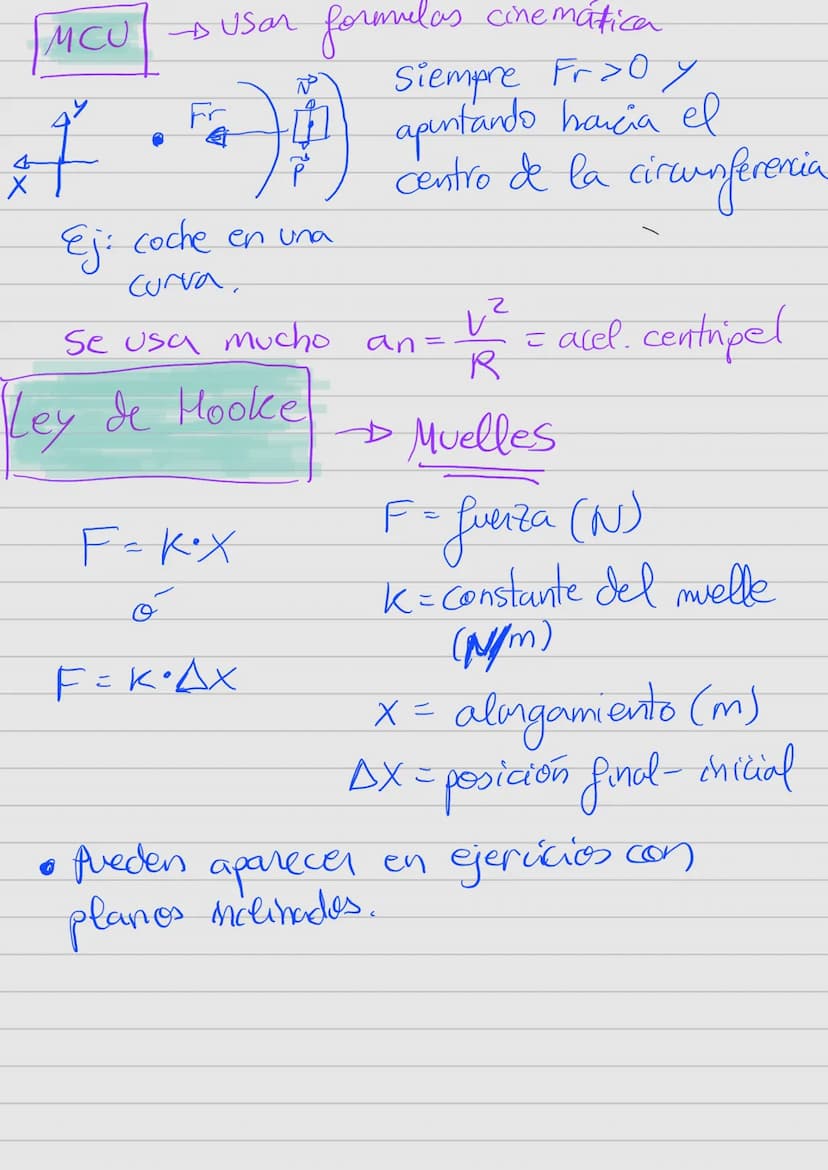 MCU → Usar formulas cinemática
Siempre Fr > 0 y
apuntando hacia el
centro de la circunferencia
Y
X
Fr
N
P
Ej: coche en una
curva.
Se usa mucho an = V²/R = acel. centripel
Ley de Hooke → Muelles
F = K·X
ó
F = K·ΔX
F = fuerza (N)
K = constante del muelle
(N/m)
X = alargamiento (m)
ΔX = posición final - inicial
• Pueden aparecer en ejercicios con
planos inclinados.